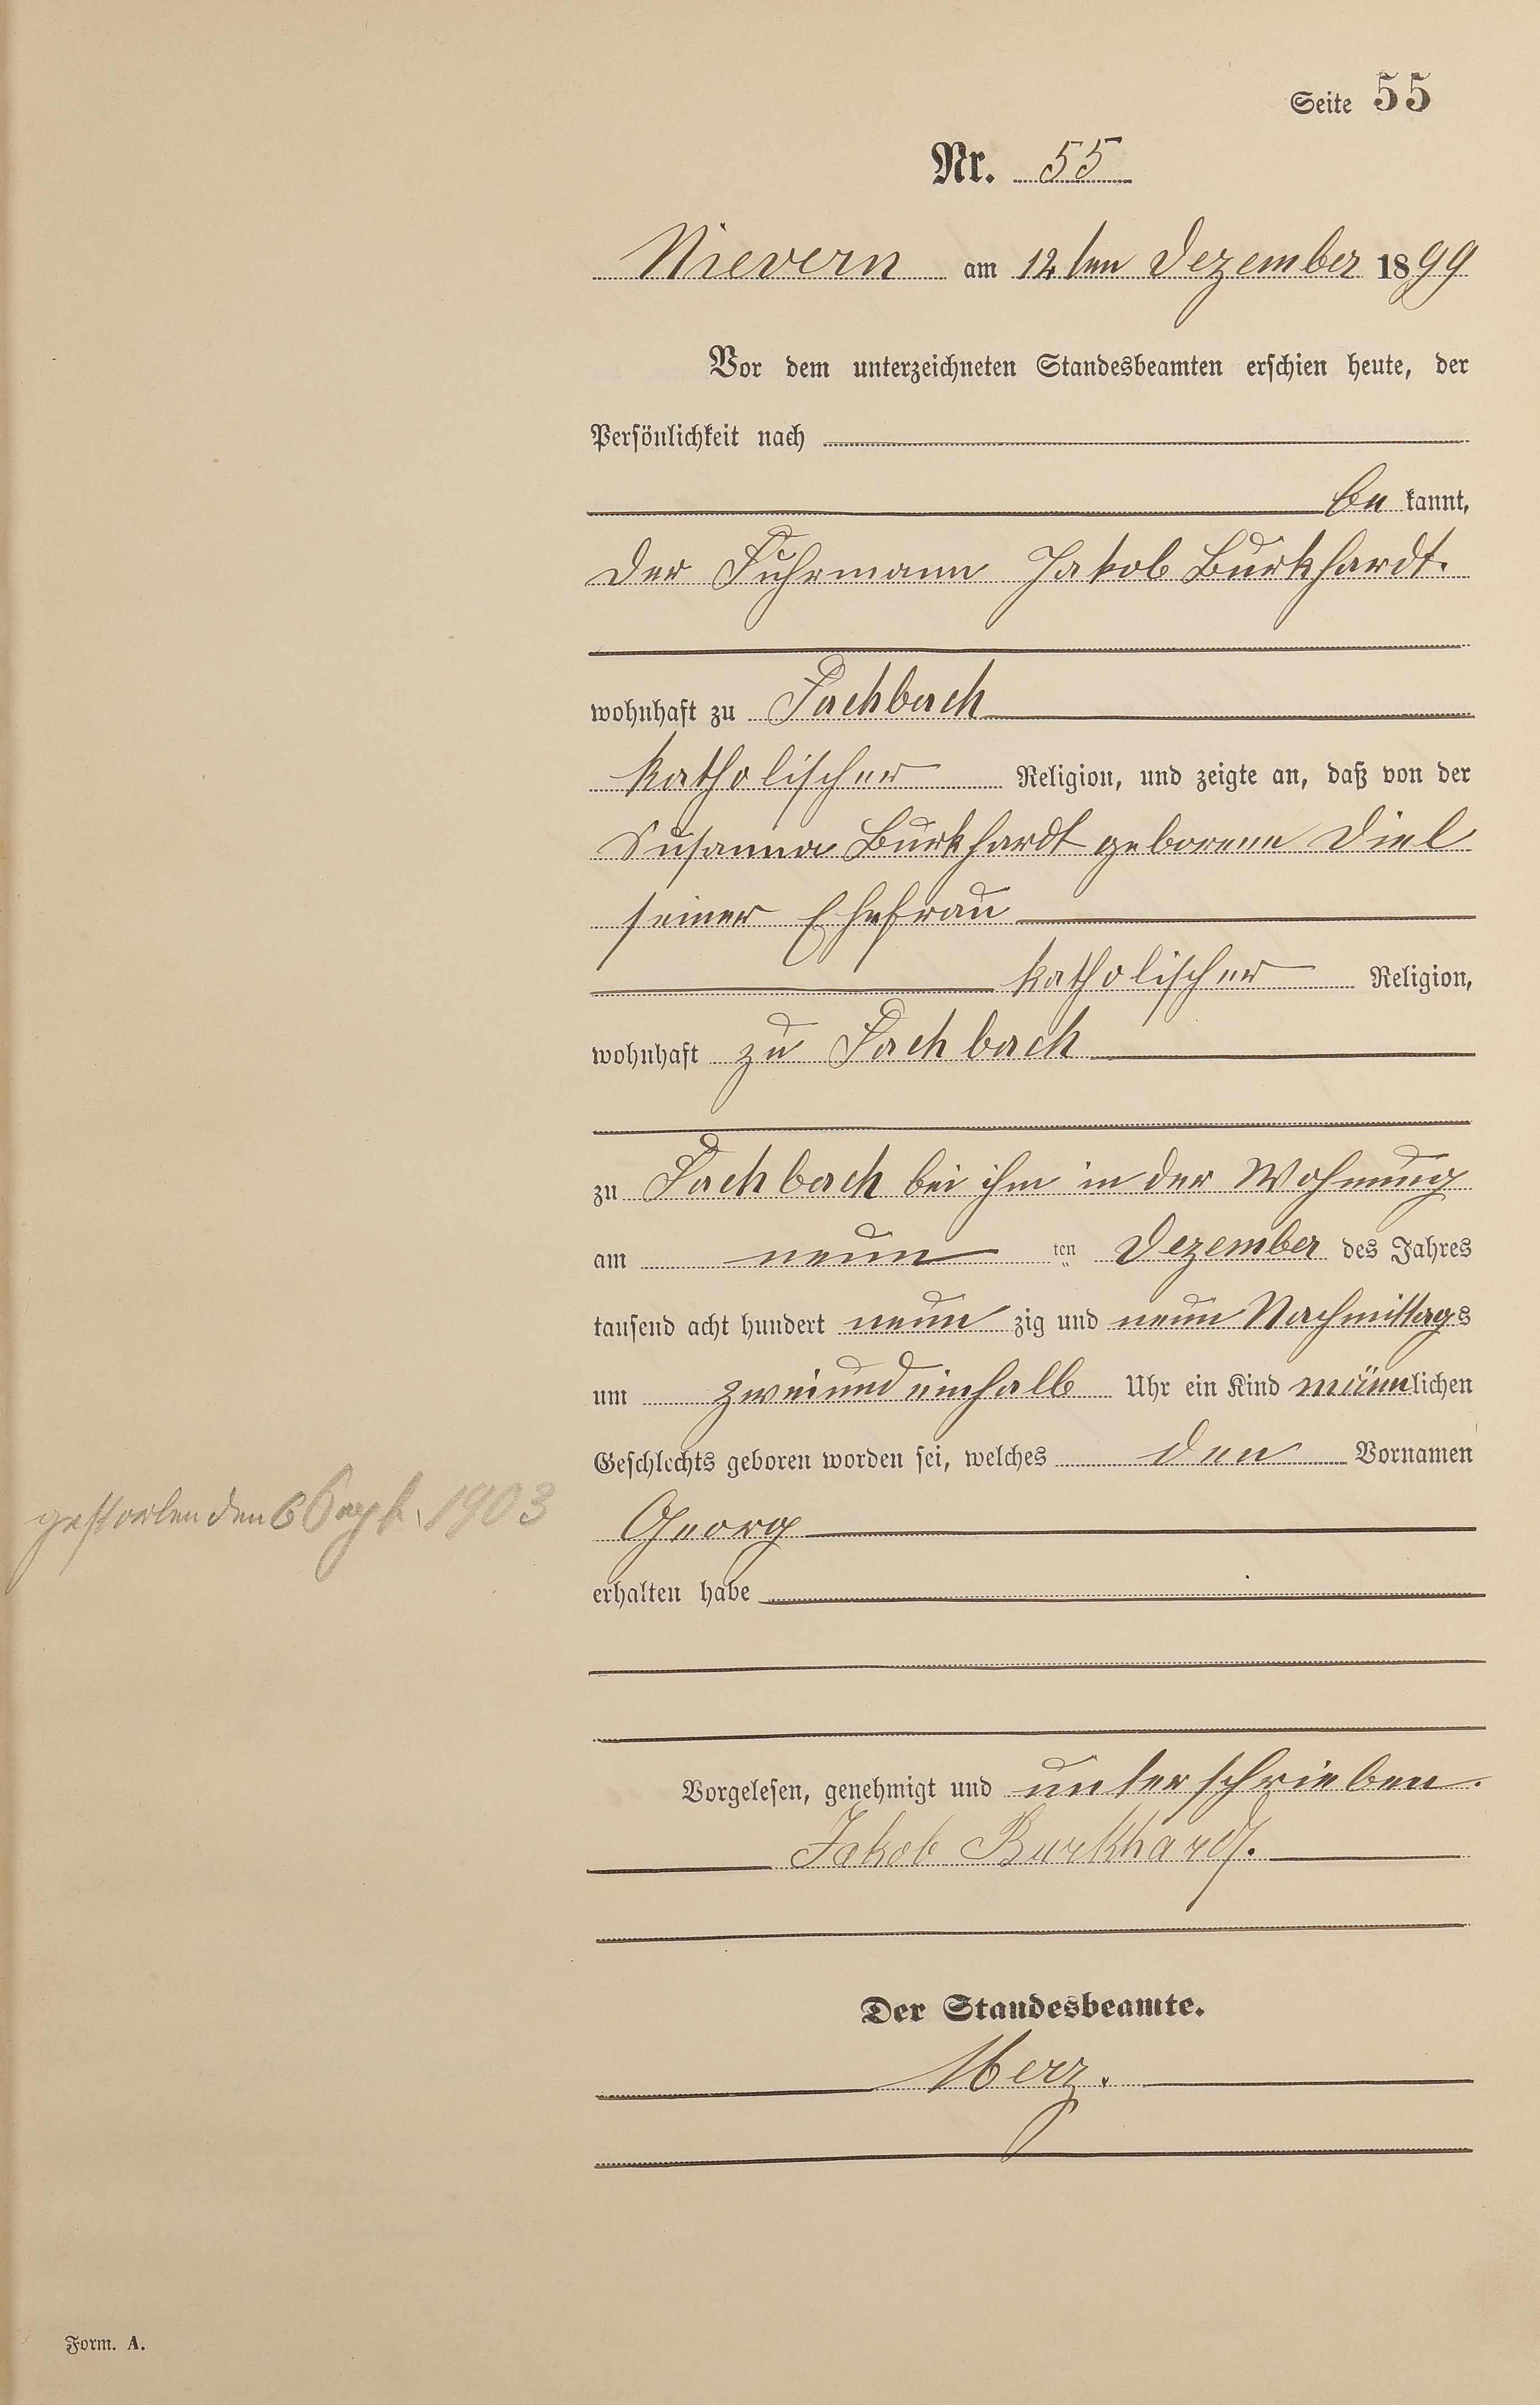 Seite 55
Nr. 55
Nievern am 12ten Dezember 1899
Vor dem unterzeichneten Standesbeamten erschien heute, der
Persönlichkeit nach
be kannt,
der Fuhrmann Jakob Burkhardt.
wohnhaft zu Fachbach
katholischer Religion, und zeigte an, daß von der
Susanna Burkhardt geborene Diel
seiner Ehefrau
katholischer Religion,
wohnhaft zu Fachbach
zu Fachbach bei ihm in der Wohnung
am neun ten Dezember des Jahres
tausend acht hundert neun zig und neun Nachmittags
um zweiundeinhalb Uhr ein Kind männlichen
Geschlechts geboren worden sei, welches den Vornamen
gestorben den 6 Sept. 1903
Georg
erhalten habe
Vorgelesen, genehmigt und unterschrieben.
Jakob Burkhardt.
Der Standesbeamte.
Merz.
Form. A.